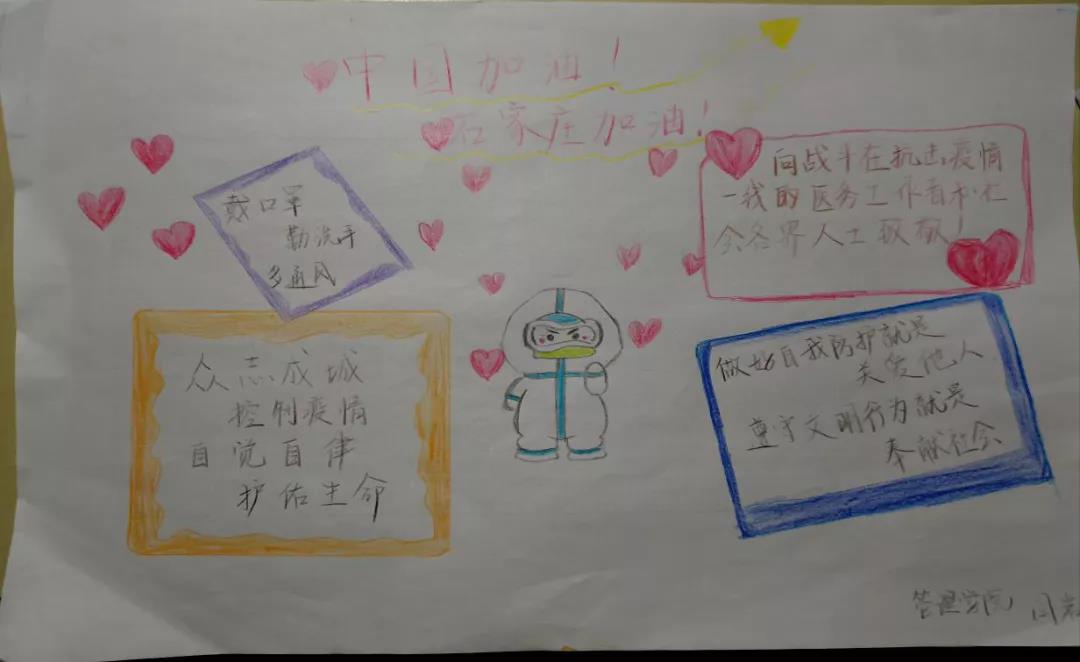 中国加油!
石家庄加油!
戴口罩
勤洗手
多通风
向战斗在抗击疫情
一线的医务工作者和社
会各界人士致敬!
众志成城
控制疫情
自觉自律
护佑生命
做好自我防护就是
关爱他人
遵守文明行为就是
奉献社会
管理学院